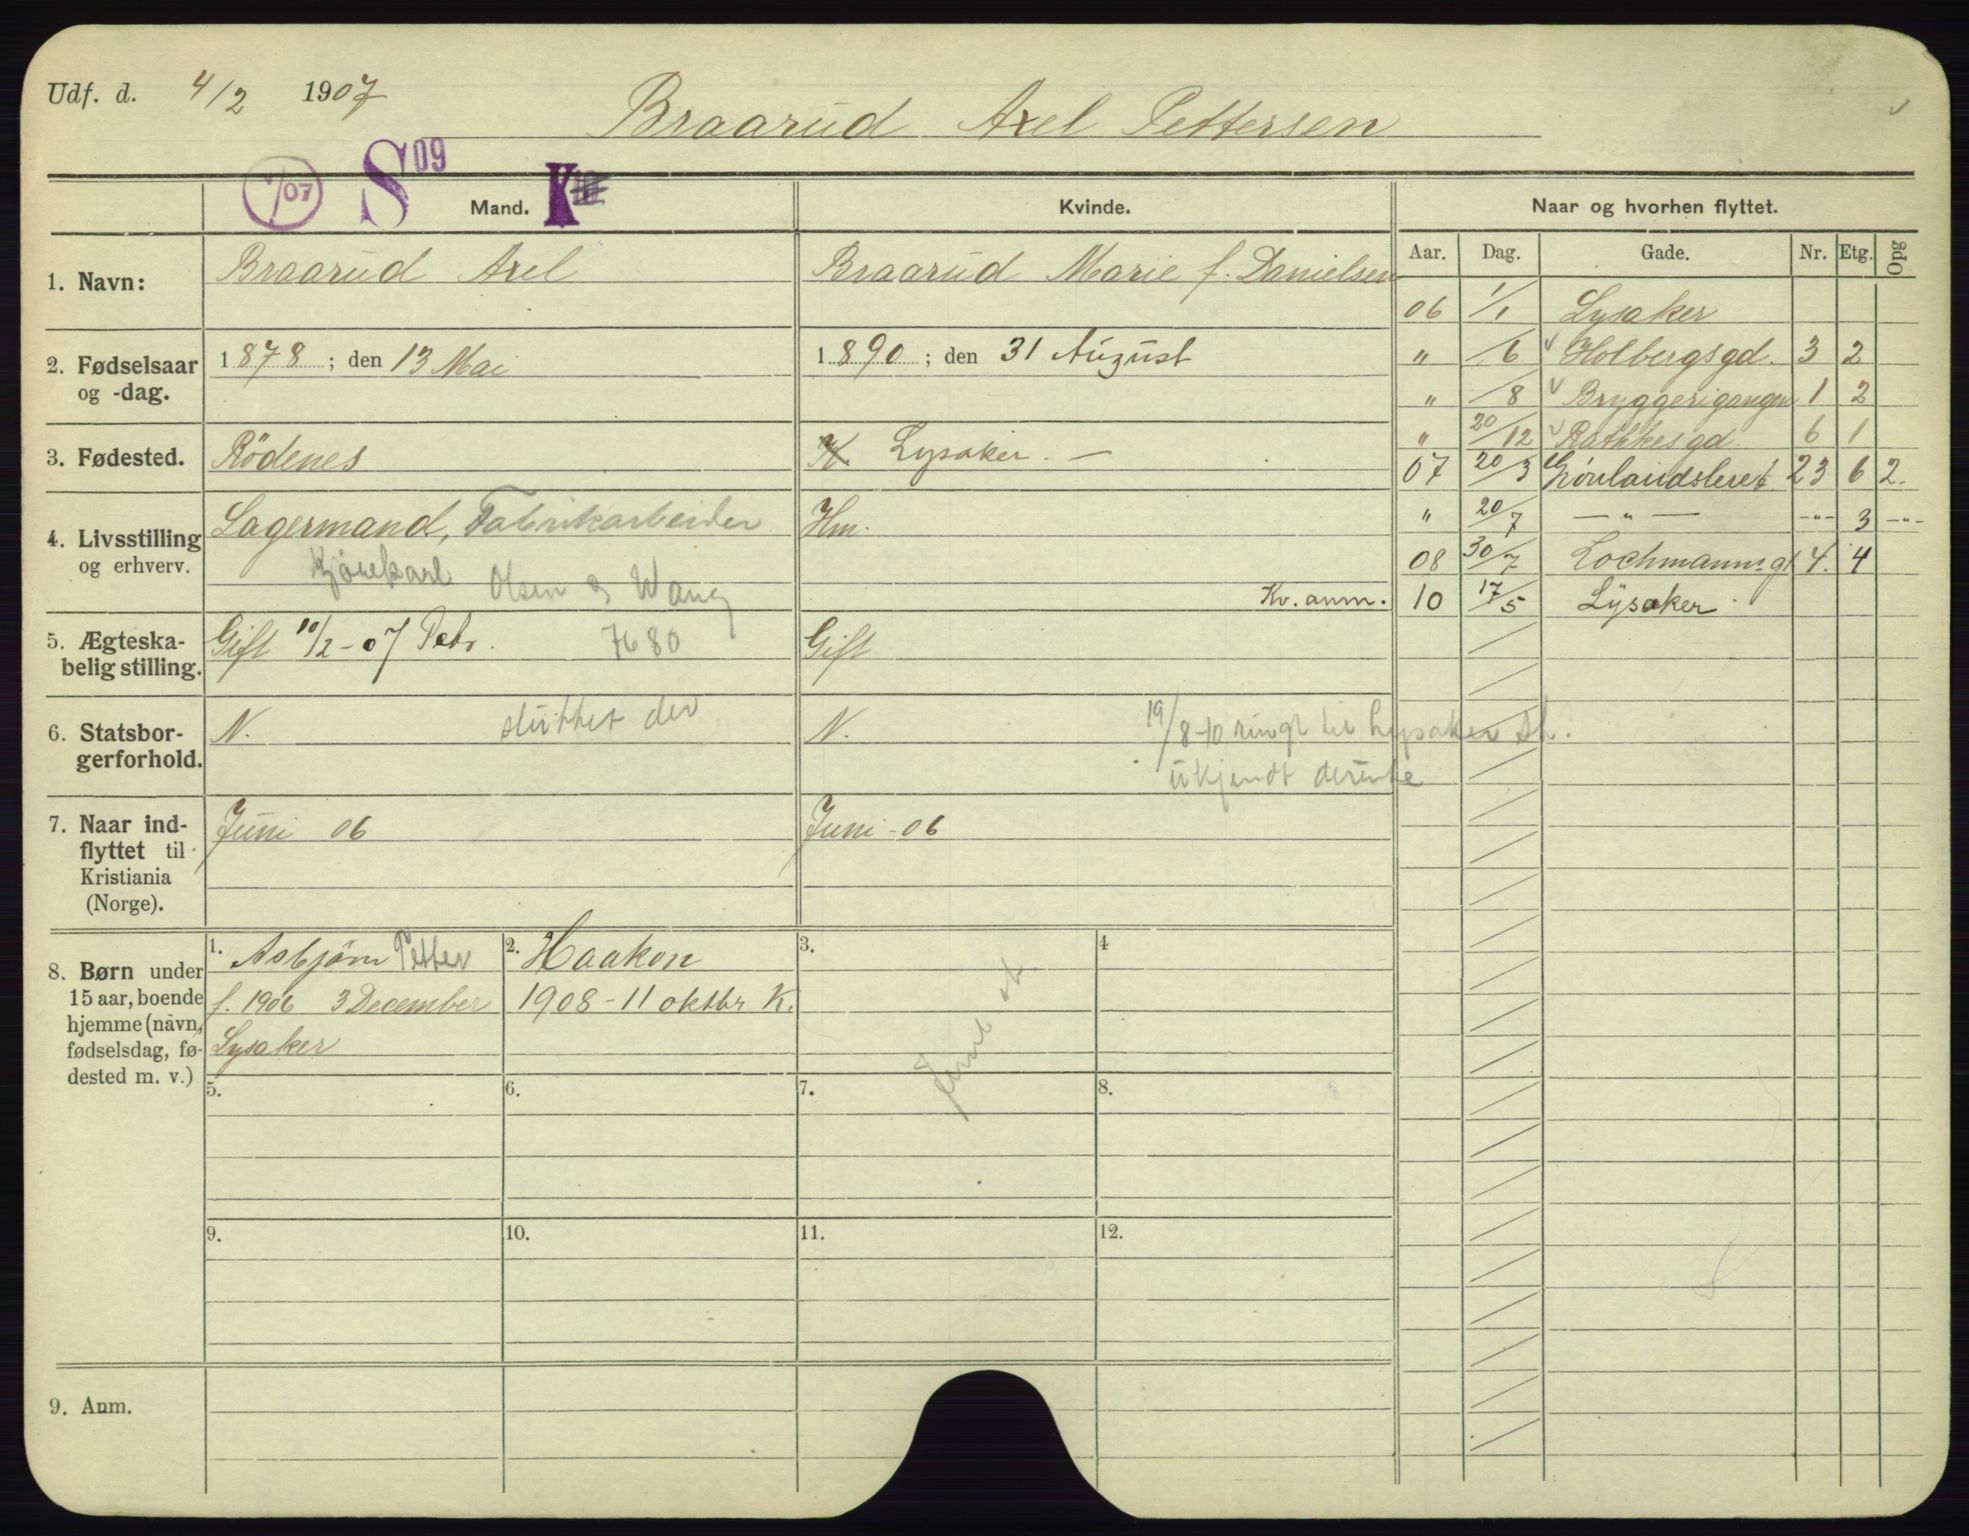 Udf. d. 4/2 1907
Braarud Axel Pettersen
/07 S 09 K 10
Mand. Kvinde. Naar og hvorhen flyttet.
Aar. Dag. Gade. Nr. Etg. Opg
1. Navn: Braarud Axel Braarud Marie f. Danielsen
06 1/1 Lysaker
2. Fødselsaar og -dag. 1878; den 13 Mai 1890; den 31 August
" /6 Holbergsgd. 3 2
" /8 Bryggerigangen 1 2
" 20/12 Rathkesgd. 6 1
3. Fødested. Rödenes K. Lysaker. —
07 20/3 Grønlandsleret 23 6 2.
4. Livsstilling og erhverv. Lagermand, Fabrikarbeider Hm.
" 20/7 — " — -"- 3 -"-
Kjørekarl Olsen & Wang
08 30/7 Lochmannsgt 4. 4
Kv. anm. 10 17/5 Lysaker
5. Ægteska-
belig stilling. Gift 10/2-07 Petr. 7680 Gift
6. Statsbor-
gerforhold. N. sluttet der N. 19/8-10 ringt til Lysaker st.
ukjendt derinte
7. Naar ind-
flyttet til
Kristiania
(Norge). Juni 06 Juni-06
8. Børn under
15 aar, boende
hjemme (navn,
fødselsdag, fø-
dested m. v.)
1. Asbjørn Petter
f. 1906 3 December
Lysaker
2. Haakon
1908-11 oktbr K.
3.
4
5.
6.
7.
8.
9.
10.
11.
12.
9. Anm.